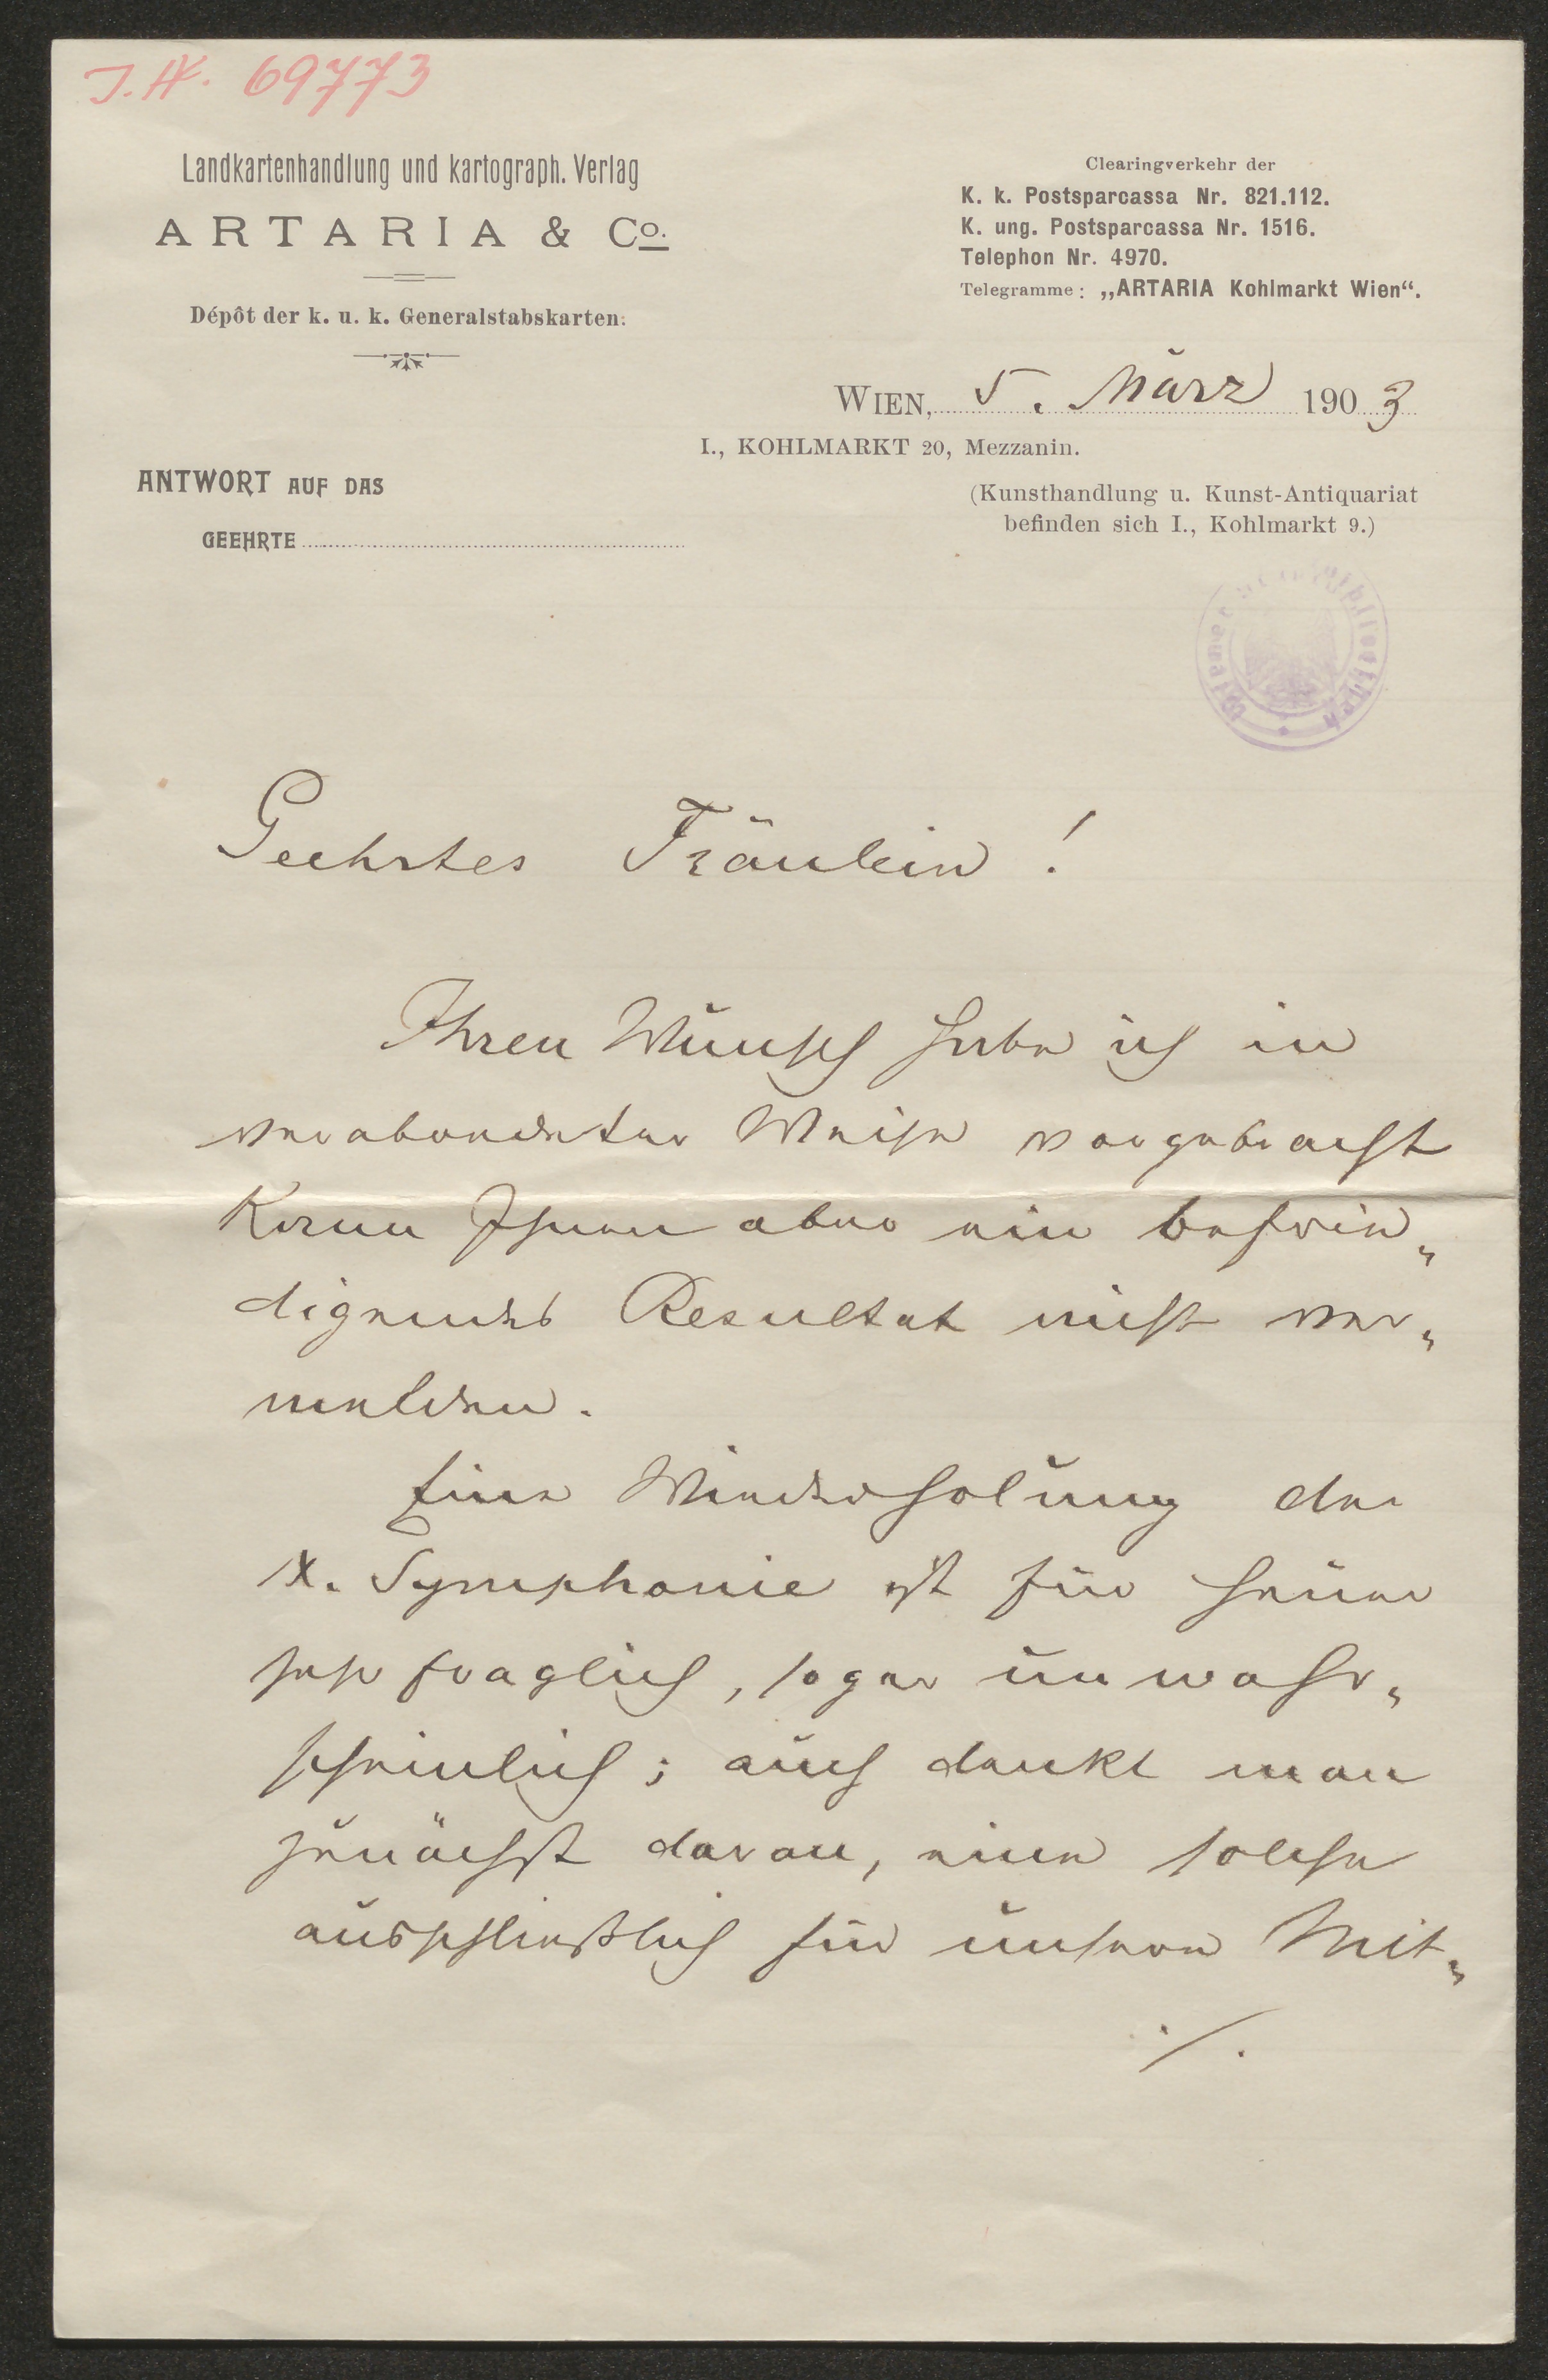 J.N. 69773
Landkartenhandlung und kartograph. Verlag
ARTARIA & Co.
Dépôt der k. u. k. Generalstabskarten.
Clearingverkehr der
K. k. Postsparcassa Nr. 821.112.
K. ung. Postsparcassa Nr. 1516.
Telephon Nr. 4970.
Telegramme: „ARTARIA Kohlmarkt Wien“.
WIEN, 5. März 1903
I., KOHLMARKT 20, Mezzanin.
(Kunsthandlung u. Kunst-Antiquariat
befinden sich I., Kohlmarkt 9.)
ANTWORT AUF DAS
GEEHRTE
Wiener Stadtbibliothek
Geehrtes Fräulein!
Ihren Wunsch habe ich in
verabredeter Weise vorgebracht
kann Ihnen aber ein befrie„
digendes Resultat nicht ver„
melden.
Eine Wiederholung der
IX. Symphonie ist für heuer
sehr fraglich, sogar unwahr„
scheinlich; auch denkt man
zunächst daran, eine solche
ausschließlich für unsere Mit„
./.